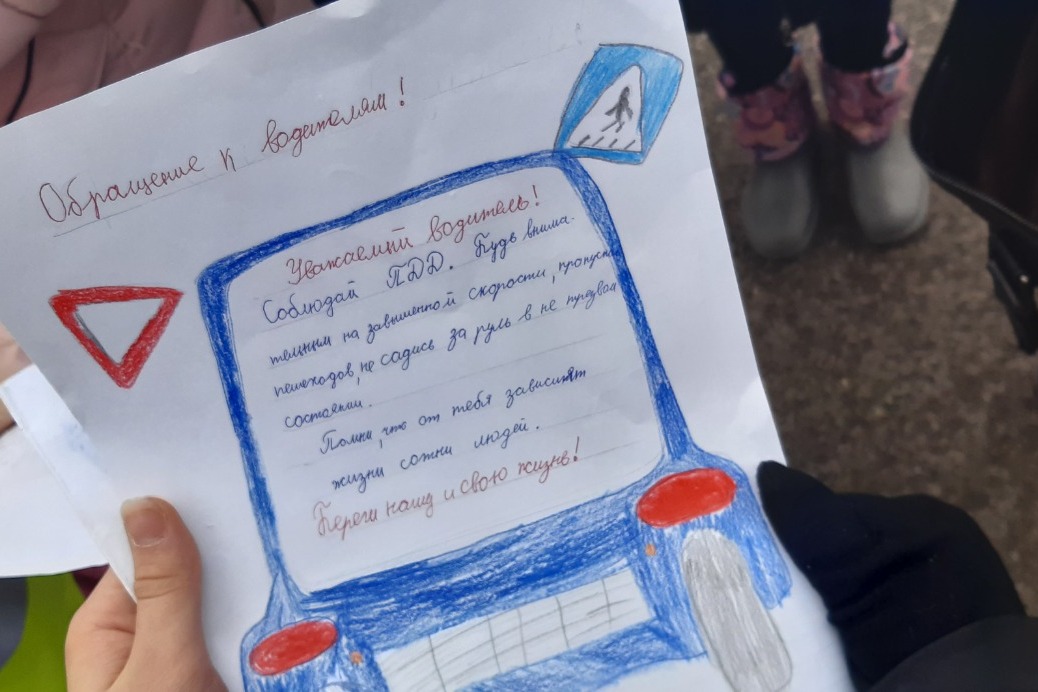 Обращение к водителям!
Уважаемый водитель!
Соблюдай ПДД. Будь внима-
тельным на завышенной скорости, пропуска
пешеходов, не садись за руль в не трезвом
состоянии.
Помни, что от тебя зависият
жизни сотни людей.
Береги нашу и свою жизнь!